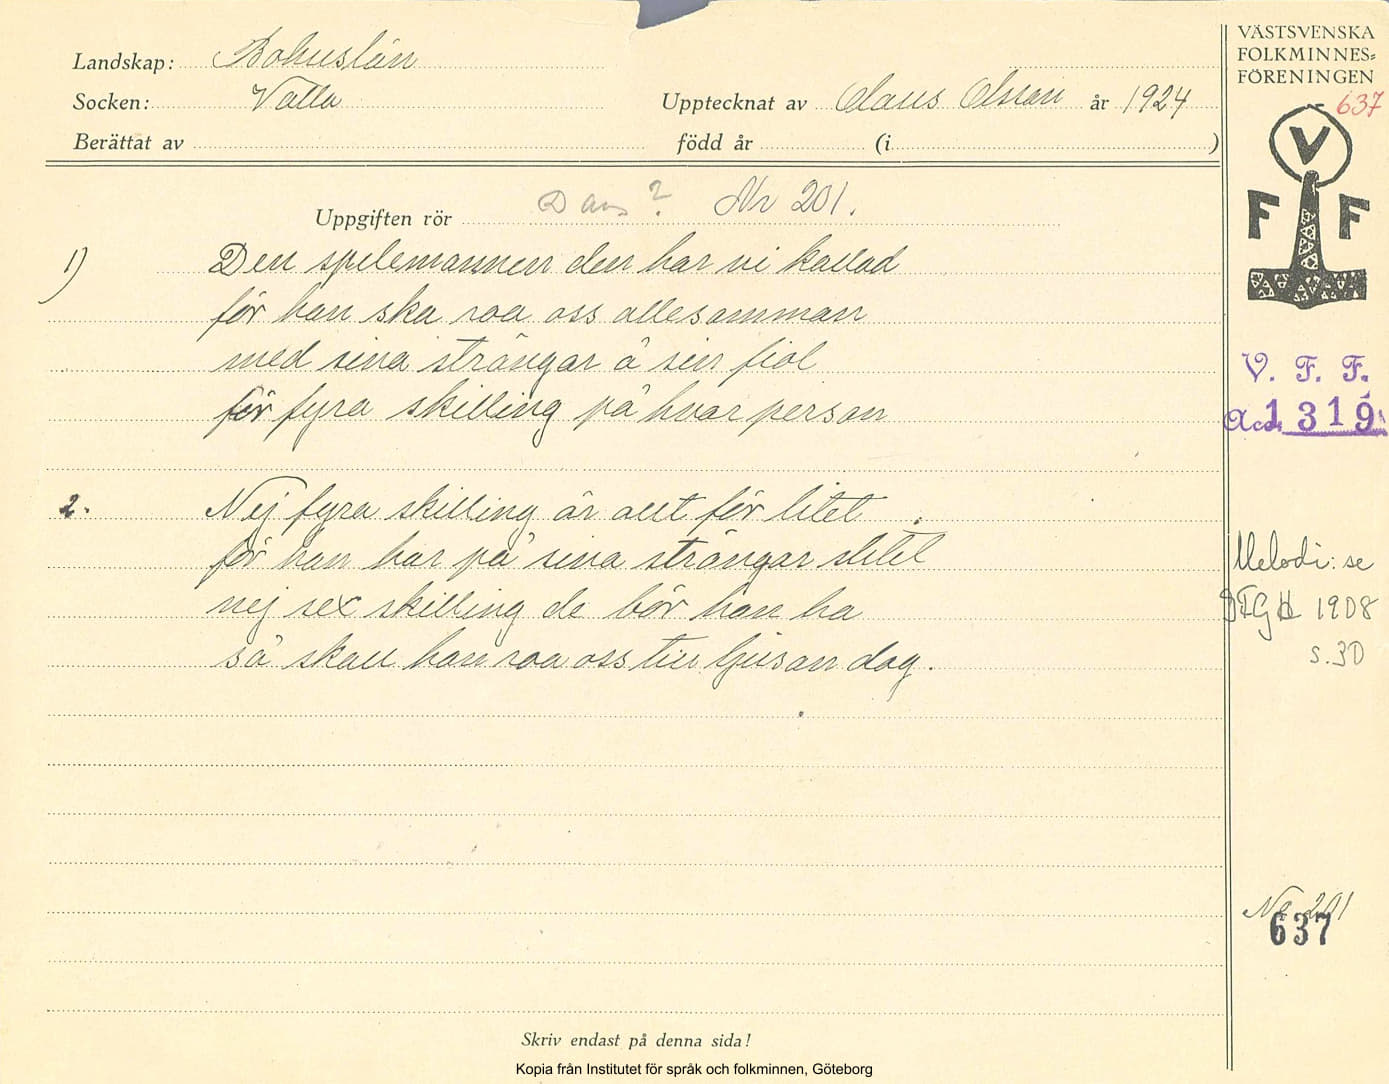 Landskap: Bohuslän
Socken: Valla
Upptecknat av Claus Olsson år 1924
Berättat av
född år (i )
VÄSTSVENSKA
FOLKMINNES=
FÖRENINGEN
637
V
F F
Uppgiften rör Dans? Nr 201.
1) Den spelemannen den har vi kallad
för han ska roa oss allesamman
med sina strängar å sin fiol
för fyra skilling på hvar person
V. F. F.
Acc. 1319
2. Nej fyra skilling är allt för litet
för han har på sina strängar slitet
nej sex skilling de bör han ha
så skall han roa oss till ljusan dag.
Melodi: se
GFGH 1908
s. 30
No 201
637
Skriv endast på denna sida!
Kopia från Institutet för språk och folkminnen, Göteborg